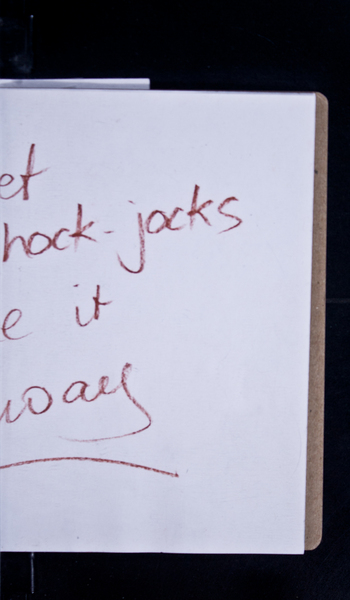 et
hock-jocks
e it
way